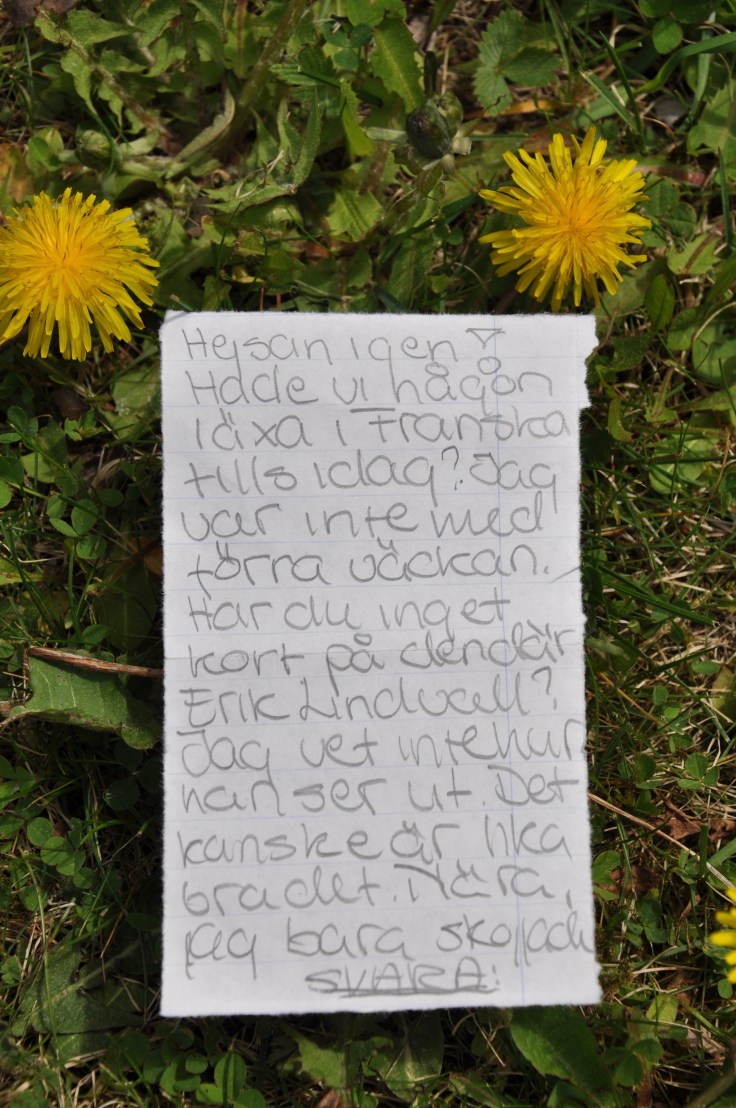 Hejsan igen
Hade vi någon
läxa i Franska
tills idag? Jag
var inte med
förra väckan.
Har du inget
kort på dendär
Erik Lindvall?
Jag vet inte hur
han ser ut. Det
kanske är lika
bra det. Nära,
jag bara skojjade
SVARA!